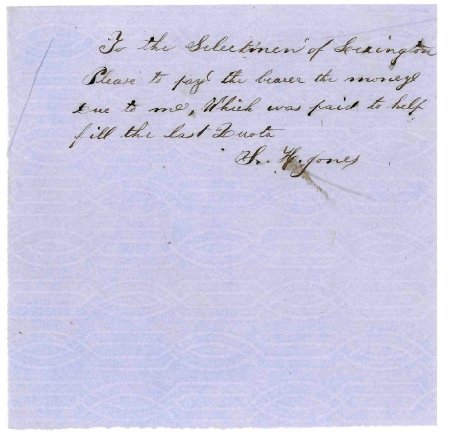 To the Selectmen of Lexington
Please to pay the bearer the money
Due to me, Which was paid to help
fill the last Quota
S. H. Jones